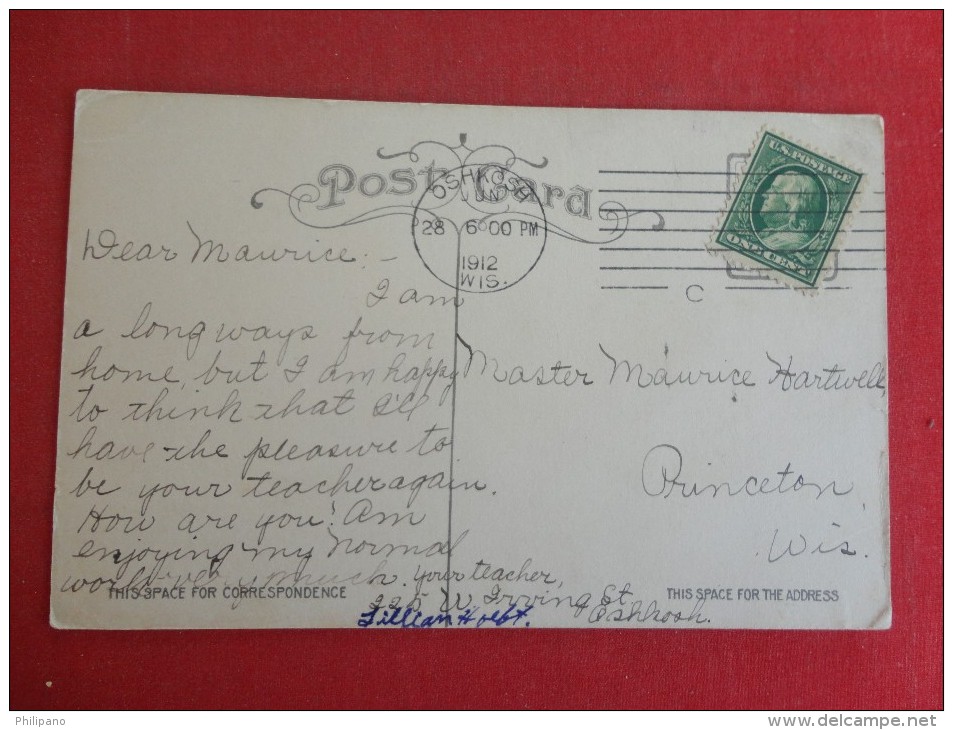 Post Card
OSHKOSH
JUN
28 6 00 PM
1912
WIS.
C
U.S. POSTAGE
ONE CENT
Dear Maurice –
I am
a long ways from
home, but I am happy
to think that I'll
have the pleasure to
be your teacher again.
How are you? Am
enjoying my Normal
work very much. your teacher,
225 W. Irving St.
Lillian Oshkosh.
Master Maurice Hartwell,
Princeton
Wis.
THIS SPACE FOR CORRESPONDENCE
THIS SPACE FOR THE ADDRESS
Philipano
http://www.delcampe.net